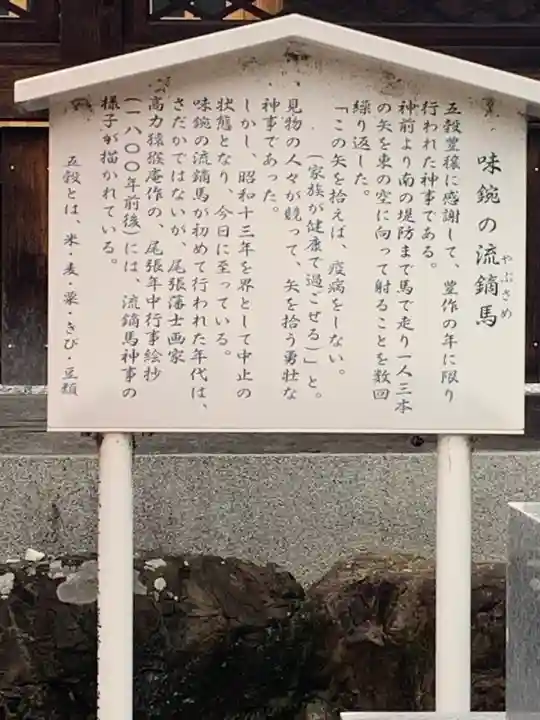 味鋺の流鏑馬
やぶさめ
五穀豊穣に感謝して、豊作の年に限り
行われた神事である。
神前より南の堤防まで馬で走り一人三本
の矢を東の空に向って射ることを数回
繰り返した。
「この矢を拾えば、疫病をしない。
(家族が健康で過ごせる)」と。
見物の人々が競って、矢を拾う勇壮な
神事であった。
しかし、昭和十三年を界として中止の
状態となり、今日に至っている。
味鋺の流鏑馬が初めて行われた年代は、
さだかではないが、尾張藩士画家
高力猿猴庵作の、尾張年中行事絵抄
(一八〇〇年前後)には、流鏑馬神事の
様子が描かれている。
五穀とは、米・麦・粟・きび・豆類